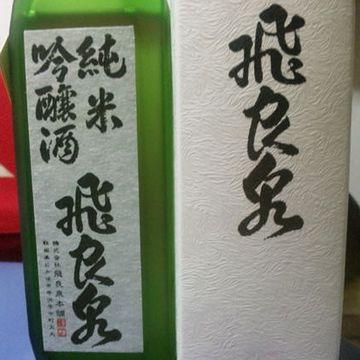 純米
吟醸酒
飛良泉
株式会社飛良泉本舗
飛良泉